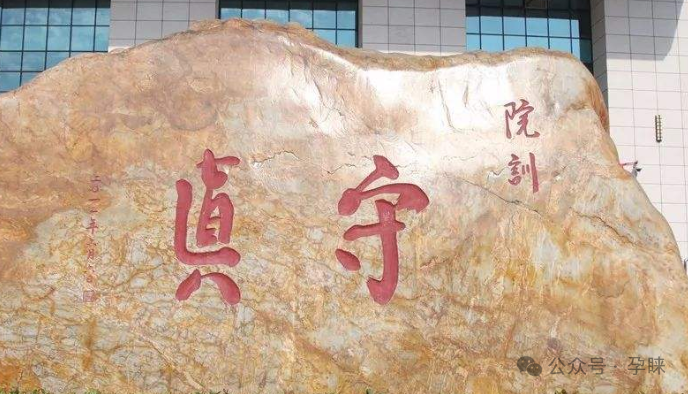 院訓
守真
二〇一一年六月六日
公众号 · 孕睐